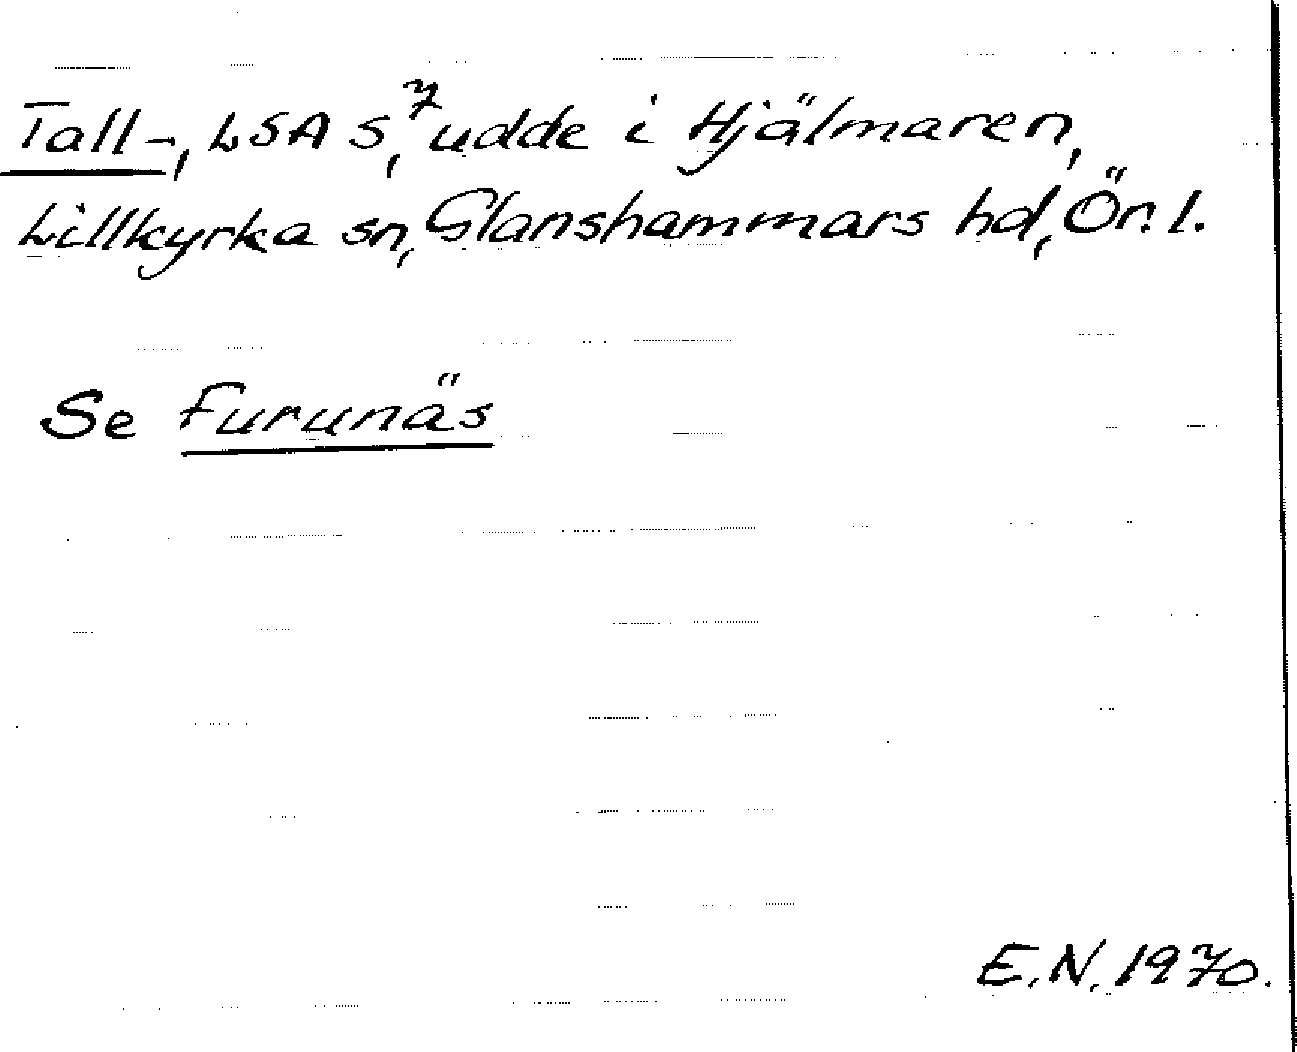 Tall-, LSA S,⁷ udde i Hjälmaren,
Lillkyrka sn, Glanshammars hd, Ör. l.
Se Furunäs
E.N. 1970.